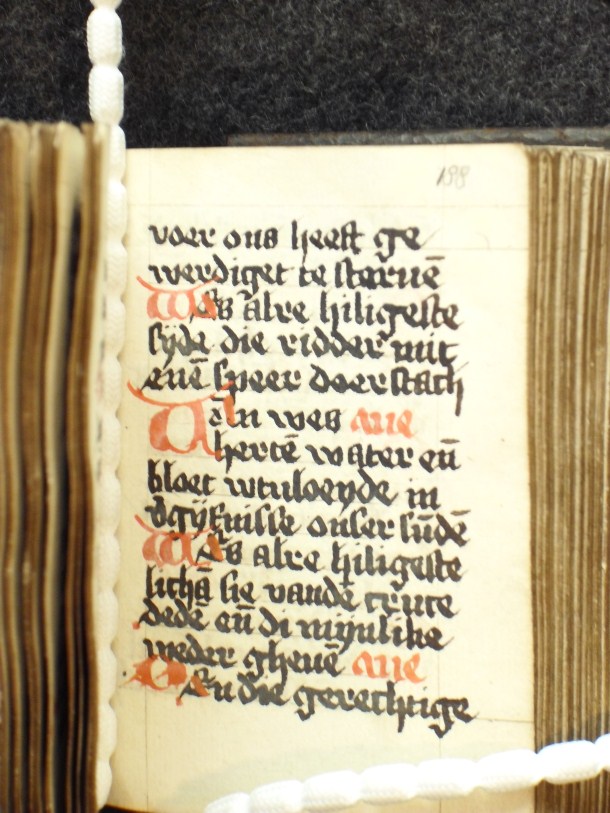 188
voer ons heeft ge
werdiget te steruē
Wes alre hiligeste
sijde die ridder mit
enē speer doerstach
Uān wes aue
hertē water eñ
bloet wtuloeyde in
v̉gijfnisse onser sūdē
Was alre hiligeste
lichā sie vandē cruce
dedē eñ di mynlike
weder gheuē aue
En die gerechtige